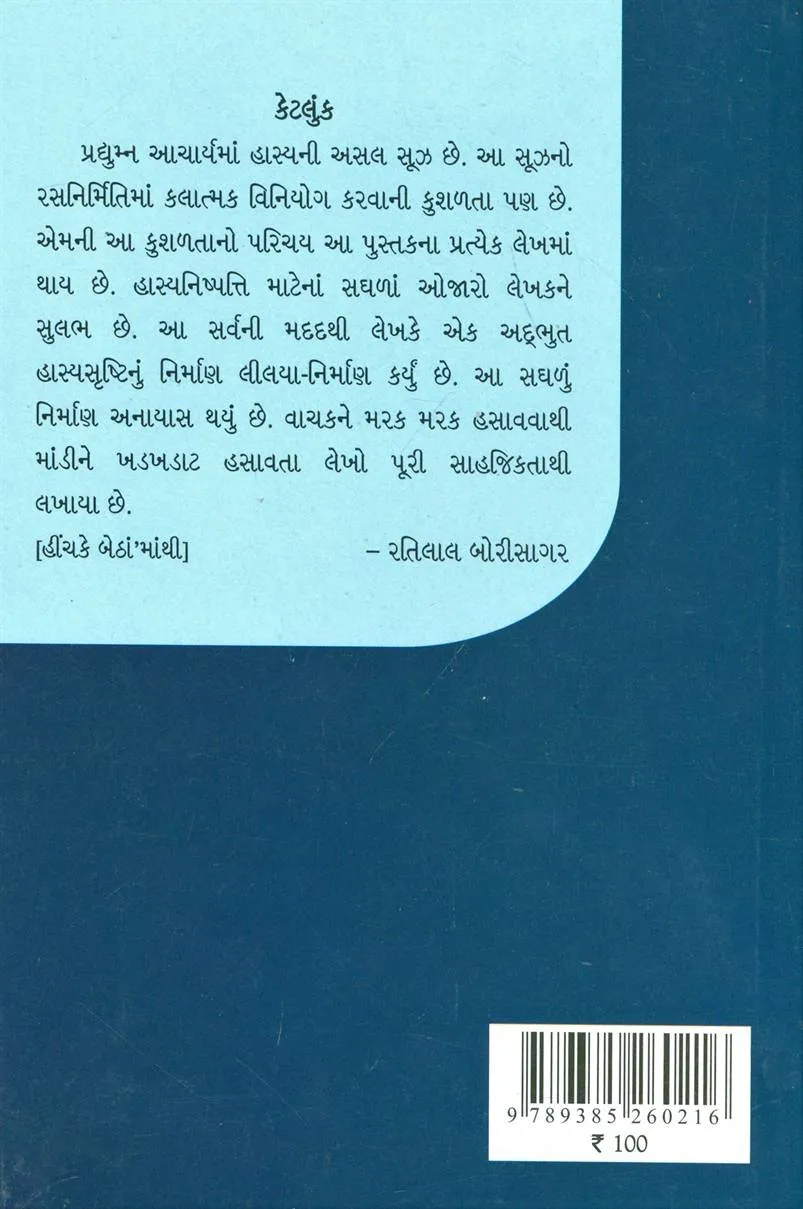 કેટલુંક
પ્રદ્યુમ્ન આચાર્યમાં હાસ્યની અસલ સૂઝ છે. આ સૂઝનો
રસનિર્મિતિમાં કલાત્મક વિનિયોગ કરવાની કુશળતા પણ છે.
એમની આ કુશળતાનો પરિચય આ પુસ્તકના પ્રત્યેક લેખમાં
થાય છે. હાસ્યનિષ્પત્તિ માટેનાં સઘળાં ઓજારો લેખકને
સુલભ છે. આ સર્વની મદદથી લેખકે એક અદ્‌ભુત
હાસ્યસૃષ્ટિનું નિર્માણ લીલયા-નિર્માણ કર્યું છે. આ સઘળું
નિર્માણ અનાયાસ થયું છે. વાચકને મરક મરક હસાવવાથી
માંડીને ખડખડાટ હસાવતા લેખો પૂરી સાહજિકતાથી
લખાયા છે.
[હીંચકે બેઠાં’માંથી] – રતિલાલ બોરીસાગર
9 789385 260216
₹ 100